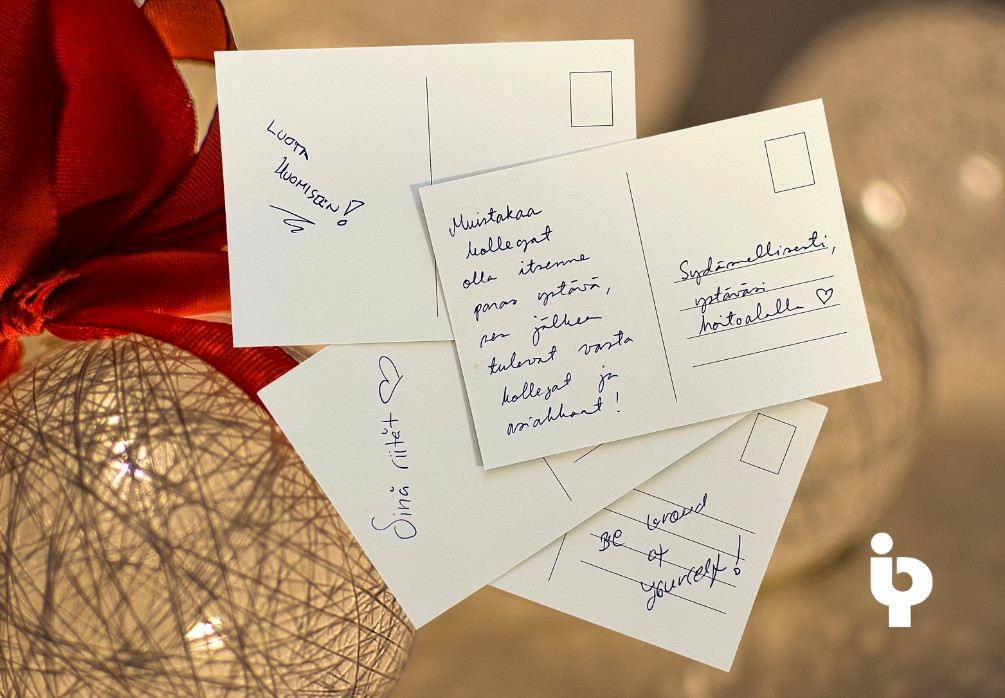 LUOTA
HUOMISEEN!
Muistakaa
kollegat
olla itsenne
paras ystävä,
sen jälkeen
tulevat vasta
kollegat ja
asiakkaat!
Sydämellisesti,
ystäväsi
hoitoalalla ♡
Sinä riität ♡
BE proud
of
yourself!